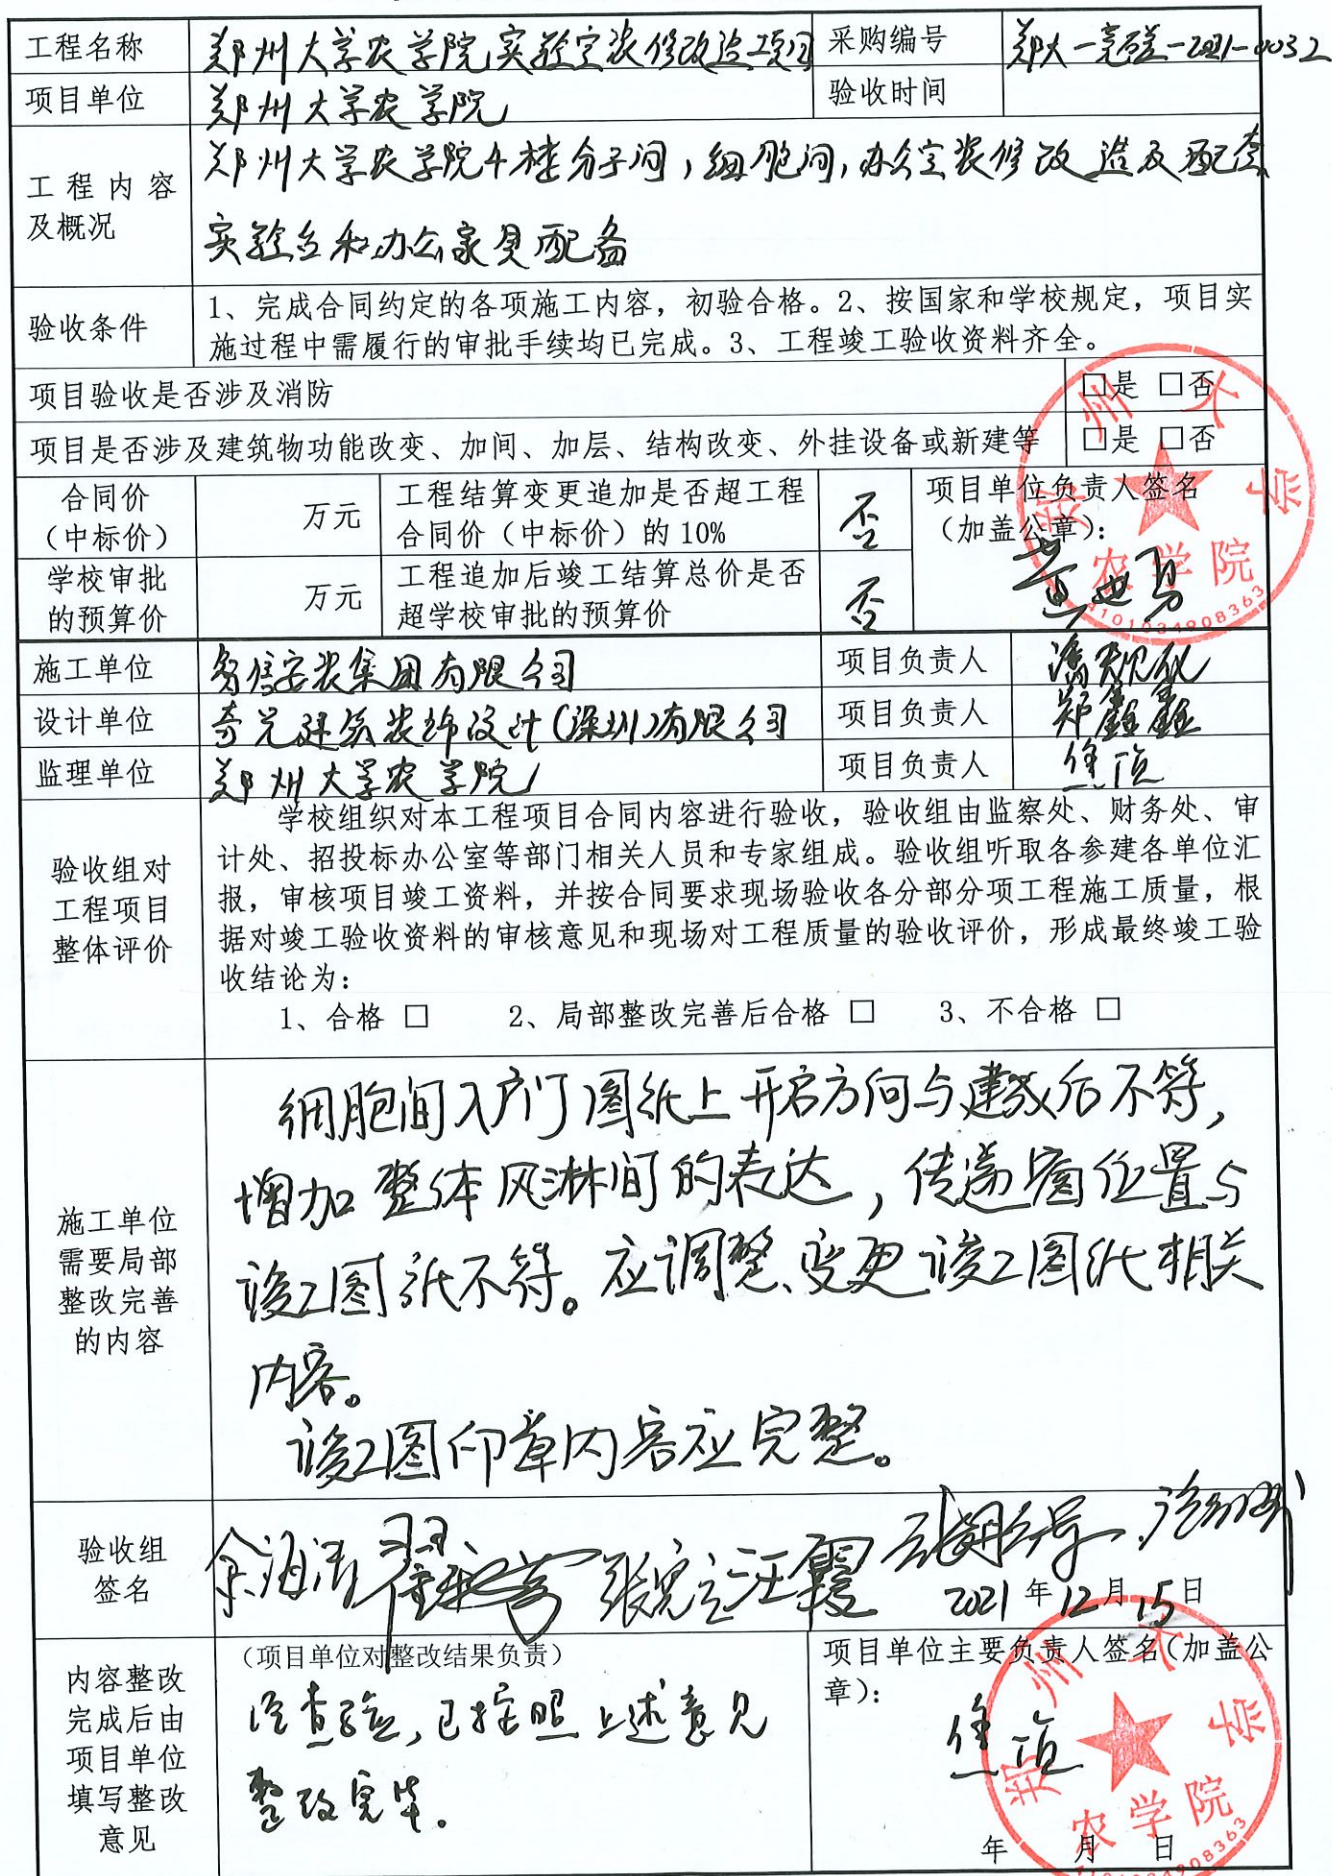 工程名称 郑州大学农学院实验室装修改造项目 采购编号 郑大-竞磋-2021-0032
项目单位 郑州大学农学院 验收时间
工程内容及概况 郑州大学农学院4楼分子间,细胞间,办公室装修改造及配套
实验台和办公家具配备
验收条件 1、完成合同约定的各项施工内容，初验合格。2、按国家和学校规定，项目实
施过程中需履行的审批手续均已完成。3、工程竣工验收资料齐全。
项目验收是否涉及消防 □是 □否
项目是否涉及建筑物功能改变、加间、加层、结构改变、外挂设备或新建等 □是 □否
合同价
（中标价） 万元 工程结算变更追加是否超工程
合同价（中标价）的10% 否 项目单位负责人签名
（加盖公章）：
学校审批
的预算价 万元 工程追加后竣工结算总价是否
超学校审批的预算价 否
郑州大学
农学院
4101034908363
施工单位 安装集团有限公司 项目负责人
设计单位 建筑装饰设计(深圳)有限公司 项目负责人 郑鑫鑫
监理单位 郑州大学农学院 项目负责人
验收组对
工程项目
整体评价
学校组织对本工程项目合同内容进行验收，验收组由监察处、财务处、审
计处、招投标办公室等部门相关人员和专家组成。验收组听取各参建各单位汇
报，审核项目竣工资料，并按合同要求现场验收各分部分项工程施工质量，根
据对竣工验收资料的审核意见和现场对工程质量的验收评价，形成最终竣工验
收结论为：
1、合格 □ 2、局部整改完善后合格 □ 3、不合格 □
施工单位
需要局部
整改完善
的内容
细胞间入户门图纸上开启方向与建成后不符,
增加整体风淋间的表达,传递窗位置与
竣工图纸不符。应调整、变更竣工图纸相关
内容。
竣工图印章内容应完整。
验收组
签名
余海涛 汪霞
2021年12月15日
内容整改
完成后由
项目单位
填写整改
意见
（项目单位对整改结果负责）
经查验,已按照上述意见
整改完毕。
项目单位主要负责人签名（加盖公
章）：
年 月 日
郑州大学
农学院